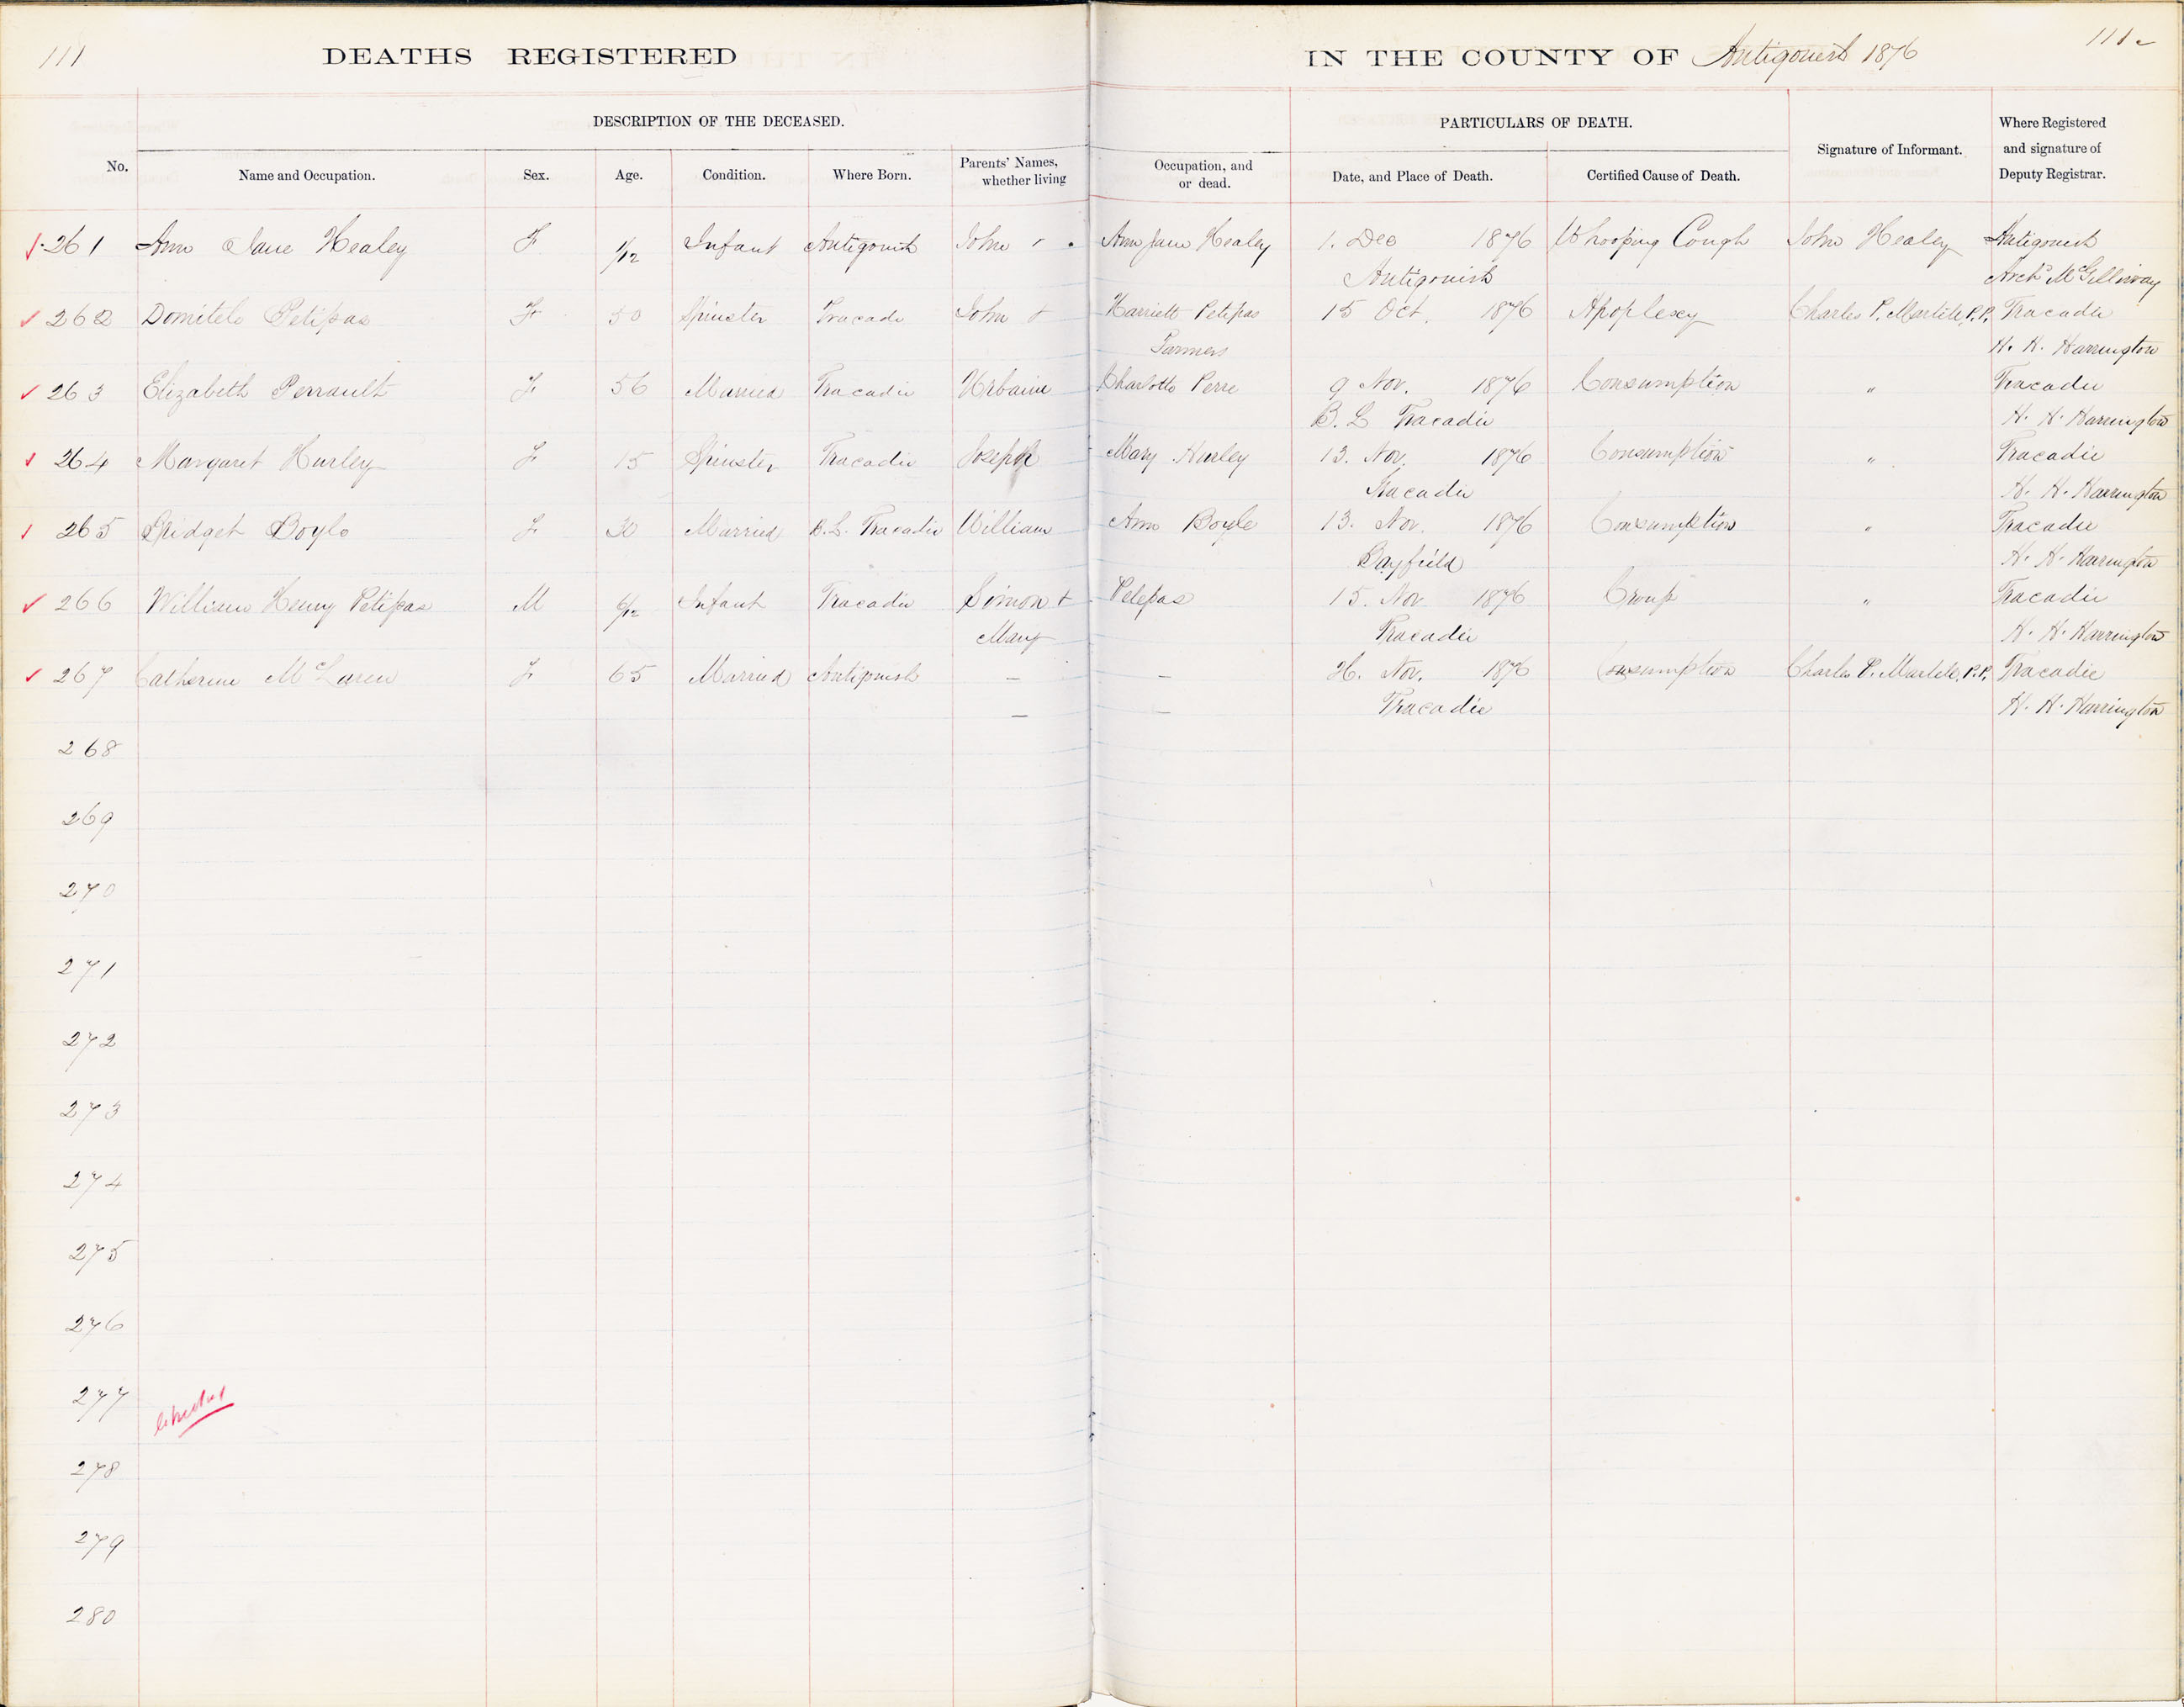 111
DEATHS REGISTERED IN THE COUNTY OF Antigonish 1876
111
DESCRIPTION OF THE DECEASED. PARTICULARS OF DEATH.
No. Name and Occupation. Sex. Age. Condition. Where Born. Parents' Names, whether living Occupation, and or dead. Date, and Place of Death. Certified Cause of Death. Signature of Informant. Where Registered and signature of Deputy Registrar.
261 Ann Jane Healey F 1/12 Infant Antigonish John + Ann Jane Healey 1. Dec 1876 Whooping Cough John Healey Antigonish
Antigonish Archd McGillivray
262 Domitele Petipas F 50 Spinster Tracadie John + Harriett Petipas 15 Oct. 1876 Apoplexy Charles P. Martele, P.P. Tracadie
Farmers H. H. Harrington
263 Elizabeth Perrault F 56 Married Tracadie Urbain Charlotte Perre 9 Nov. 1876 Consumption " Tracadie
B. L Tracadie H. H. Harrington
264 Margaret Hurley F 15 Spinster Tracadie Joseph Mary Hurley 13. Nov. 1876 Consumption " Tracadie
Tracadie H. H. Harrington
265 Bridget Boyle F 30 Married B. L. Tracadie William Ann Boyle 13. Nov. 1876 Consumption " Tracadie
Bayfield H. H. Harrington
266 William Henry Petipas M 6/12 Infant Tracadie Simon + Petepas 15. Nov 1876 Croup " Tracadie
Mary Tracadie H. H. Harrington
267 Catherine McLaren F 65 Married Antigonish — — 26. Nov. 1876 Consumption Charles P. Martele, P.P. Tracadie
— — Tracadie H. H. Harrington
268
269
270
271
272
273
274
275
276
277
278
279
280